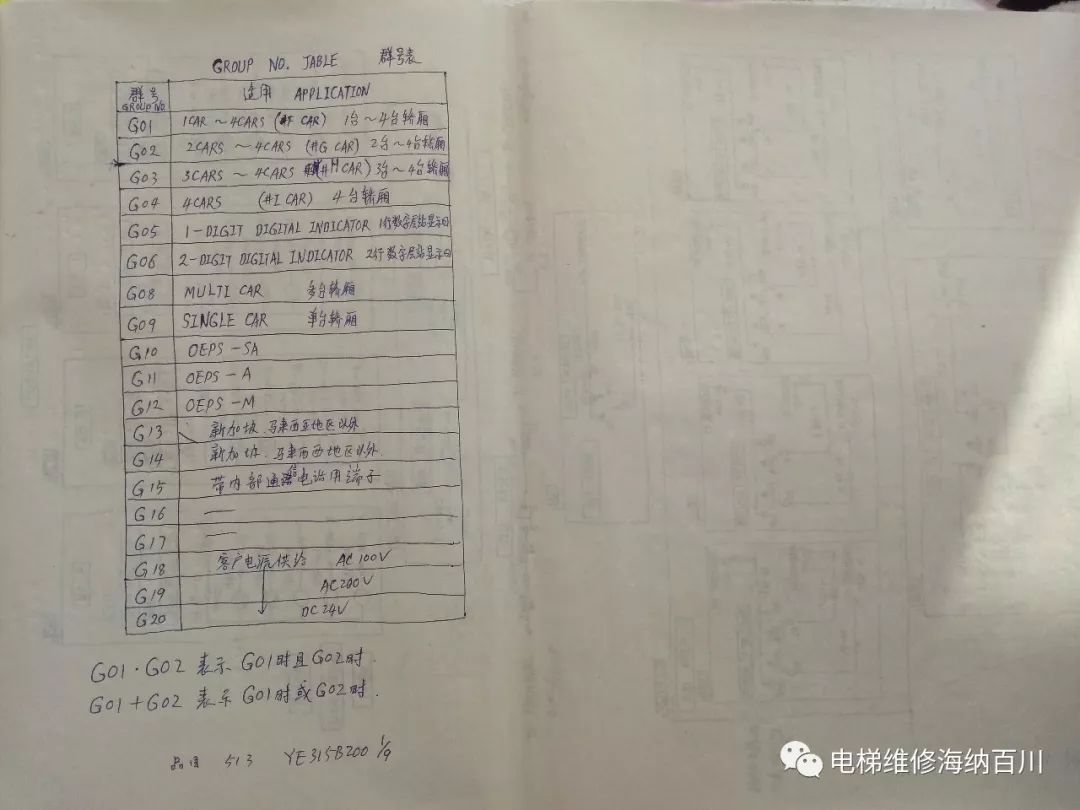 GROUP NO. JABLE 群号表
群号 适用 APPLICATION
GROUP No.
G01 1CAR ~ 4CARS (#F CAR) 1台~4台轿厢
G02 2CARS ~ 4CARS (#G CAR) 2台~4台轿厢
G03 3CARS ~ 4CARS (#H CAR) 3台~4台轿厢
G04 4CARS (#I CAR) 4台轿厢
G05 1-DIGIT DIGITAL INDICATOR 1行数字层站显示
G06 2-DIGIT DIGITAL INDICATOR 2行数字层站显示
G08 MULTI CAR 多台轿厢
G09 SINGLE CAR 单台轿厢
G10 OEPS-SA
G11 OEPS-A
G12 OEPS-M
G13 新加坡.马来西亚地区以外
G14 新加坡.马来西西地区以外
G15 带内部通信电话用端子
G16 —
G17 —
G18 客户电源供给 AC100V
G19 AC200V
G20 DC24V
G01·G02 表示 G01时且G02时.
G01+G02 表示 G01时或G02时.
品目 513 YE315B200 1/9
电梯维修海纳百川